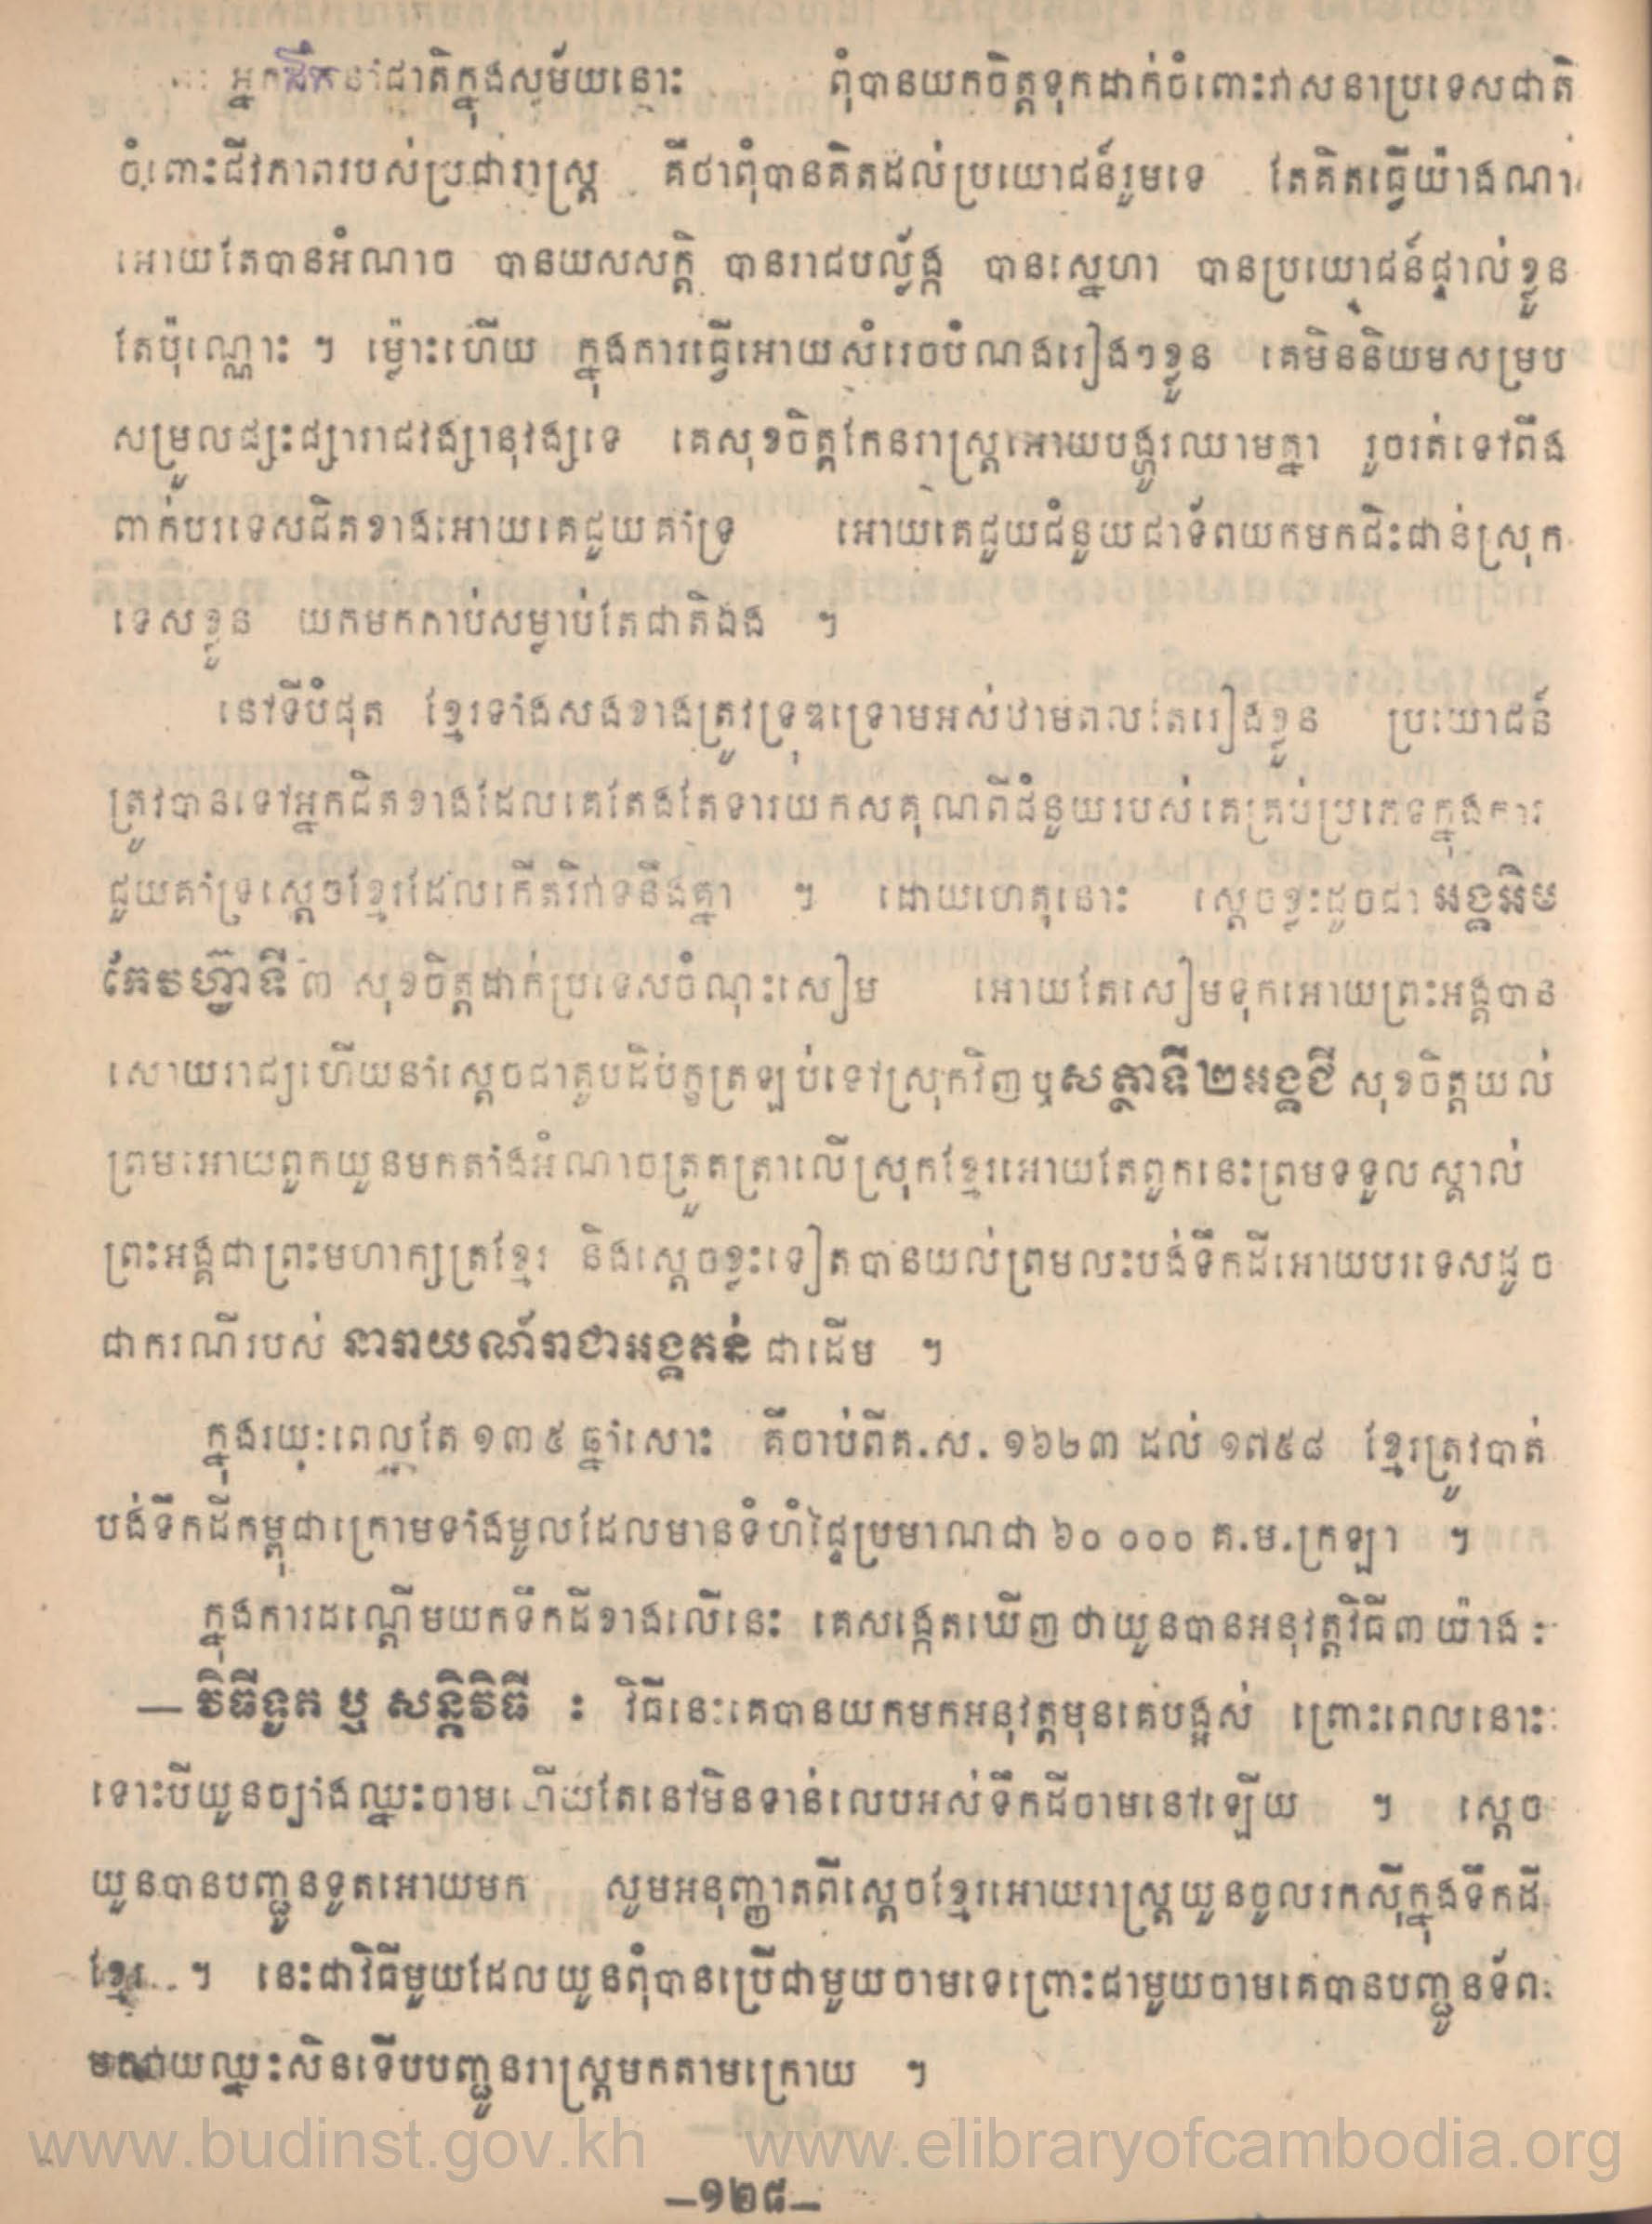 អ្នកដឹកនាំជាតិក្នុងសម័យនោះ ពុំបានយកចិត្តទុកដាក់ចំពោះវាសនាប្រទេសជាតិ
ចំពោះជីវភាពរបស់ប្រជារាស្ត្រ គឺថាពុំបានគិតដល់ប្រយោជន៍រួមទេ តែគិតធ្វើយ៉ាងណា
អោយតែបានអំណាច បានយសសក្តិ បានរាជបល្ល័ង្ក បានស្នេហា បានប្រយោជន៍ផ្ទាល់ខ្លួន
តែប៉ុណ្ណោះ ។ ម្ល៉ោះហើយ ក្នុងការធ្វើអោយសំរេចបំណងរៀងៗខ្លួន គេមិននិយមសម្រប
សម្រួលផ្សះផ្សារាជវង្សានុវង្សទេ គេសុខចិត្តកែនរាស្ត្រអោយបង្ហូរឈាមគ្នា រួចរត់ទៅពឹង
ពាក់បរទេសជិតខាងអោយគេជួយគាំទ្រ អោយគេជួយជំនួយជាទ័ពយកមកជិះជាន់ស្រុក
ទេសខ្លួន យកមកកាប់សម្លាប់តែជាតិឯង ។
នៅទីបំផុត ខ្មែរទាំងសងខាងត្រូវទ្រុឌទ្រោមអស់ឋាមពលតែរៀងខ្លួន ប្រយោជន៍
ត្រូវបានទៅអ្នកជិតខាងដែលគេតែងតែទារយកសគុណពីជំនួយរបស់គេគ្រប់ប្រភេទក្នុងការ
ជួយគាំទ្រស្តេចខ្មែរដែលកើតវិវាទនឹងគ្នា ។ ដោយហេតុនោះ ស្តេចខ្លះដូចជា អង្គអិម
កែវហ៊្វាទី ៣ សុខចិត្តដាក់ប្រទេសចំណុះសៀម អោយតែសៀមទុកអោយព្រះអង្គបាន
សោយរាជ្យហើយនាំស្តេចជាគូបដិប័ក្ខត្រឡប់ទៅស្រុកវិញ ឬសត្ថាទី ២អង្គជី សុខចិត្តយល់
ព្រមអោយពួកយួនមកតាំងអំណាចត្រួតត្រាលើស្រុកខ្មែរអោយតែពួកនេះព្រមទទួលស្គាល់
ព្រះអង្គជាព្រះមហាក្សត្រខ្មែរ និងស្តេចខ្លះទៀតបានយល់ព្រមលះបង់ទឹកដីអោយបរទេសដូច
ជាករណីរបស់ នារាយណ៍រាជាអង្គតន់ ជាដើម ។
ក្នុងរយៈពេលតែ ១៣៥ ឆ្នាំសោះ គឺចាប់ពីគ.ស. ១៦២៣ ដល់ ១៧៥៨ ខ្មែរត្រូវបាត់
បង់ទឹកដីកម្ពុជាក្រោមទាំងមូលដែលមានទំហំផ្ទៃប្រមាណជា ៦០ ០០០ គ.ម.ក្រឡា ។
ក្នុងការដណ្តើមយកទឹកដីខាងលើនេះ គេសង្កេតឃើញថាយួនបានអនុវត្តវិធី៣យ៉ាង :
— វិធីទូត ឬ សន្តិវិធី : វិធីនេះគេបានយកមកអនុវត្តមុនគេបង្អស់ ព្រោះពេលនោះ
ទោះបីយួនច្បាំងឈ្នះចាមហើយតែនៅមិនទាន់លេបអស់ទឹកដីចាមនៅឡើយ ។ ស្តេច
យួនបានបញ្ជូនទូតអោយមក សូមអនុញ្ញាតពីស្តេចខ្មែរអោយរាស្ត្រយួនចូលរកស៊ីក្នុងទឹកដី
ខ្មែរ ។ នេះជាវិធីមួយដែលយួនពុំបានប្រើជាមួយចាមទេព្រោះជាមួយចាមគេបានបញ្ជូនទ័ព
ឈ្នះសិនទើបបញ្ជូនរាស្ត្រមកតាមក្រោយ ។
www.budinst.gov.kh www.elibraryofcambodia.org
—១២៨—